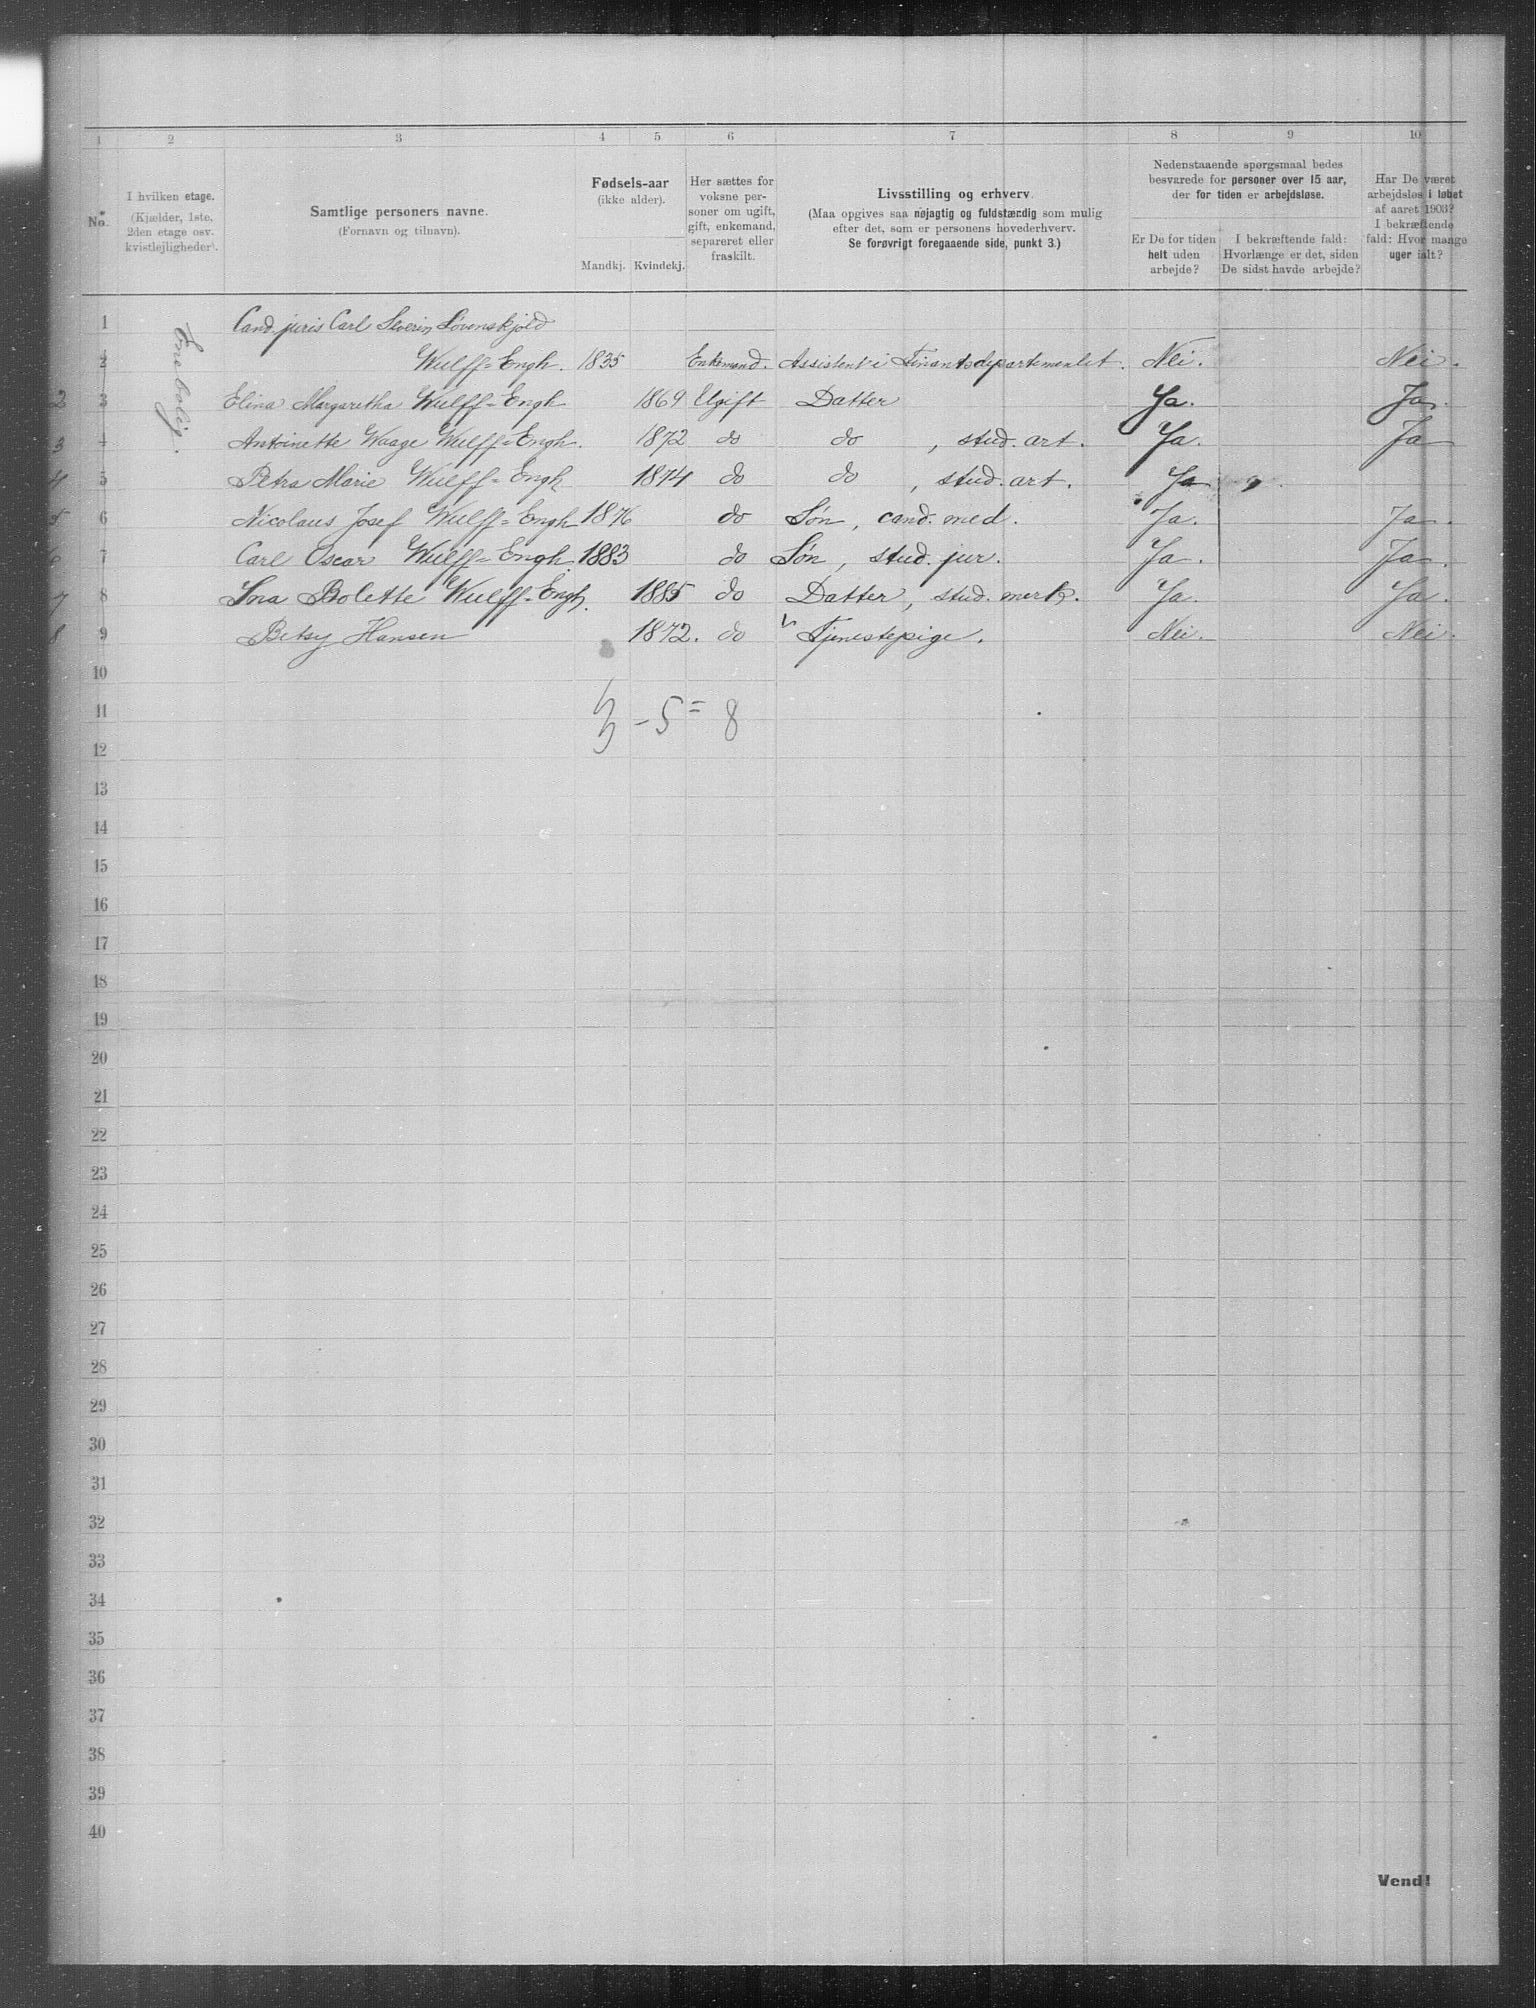 1 2 3 4 5 6 7 8 9 10
No.
I hvilken etage.
(Kjælder, 1ste,
2den etage osv.
kvistlejligheder).
Samtlige personers navne.
(Fornavn og tilnavn).
Fødsels-aar
(ikke alder).
Mandkj. Kvindekj.
Her sættes for
voksne per-
soner om ugift,
gift, enkemand,
separeret eller
fraskilt.
Livsstilling og erhverv.
(Maa opgives saa nøjagtig og fuldstændig som mulig
efter det, som er personens hovederhverv.
Se forøvrigt foregaaende side, punkt 3.)
Nedenstaaende spørgsmaal bedes
besvarede for personer over 15 aar,
der for tiden er arbejdsløse.
Er De for tiden
helt uden
arbejde?
I bekræftende fald:
Hvorlænge er det, siden
De sidst havde arbejde?
Har De været
arbejdsløs i løbet
af aaret 1903?
I bekræftende
fald: Hvor mange
uger ialt?
Enebolig.
1 Cand. juris Carl Severin Løvenskjold
2 Wulff=Engh. 1835 Enkemand. Assistent i Finantsdepartementet. Nei. Nei.
2 3 Elina Margaretha Wulff=Engh 1869 Ugift Datter Ja. Ja.
3 4 Antoinette Waage Wulff=Engh. 1872 do do , stud. art. Ja. Ja
4 5 Petra Marie Wulff=Engh 1874 do do , stud. art. Ja
5 6 Nicolaus Josef Wulff=Engh 1876 do Søn, cand. med. Ja. Ja.
6 7 Carl Oscar Wulff=Engh. 1883 do Søn, stud. jur. Ja. Ja.
7 8 Ina Bolette Wulff=Engh. 1885 do Datter, stud. merk. Ja. Ja.
8 9 Betsy Hansen 1872. do Tjenestepige. Nei. Nei.
10
11 3 - 5 = 8
12
13
14
15
16
17
18
19
20
21
22
23
24
25
26
27
28
29
30
31
32
33
34
35
36
37
38
39
40
Vend!